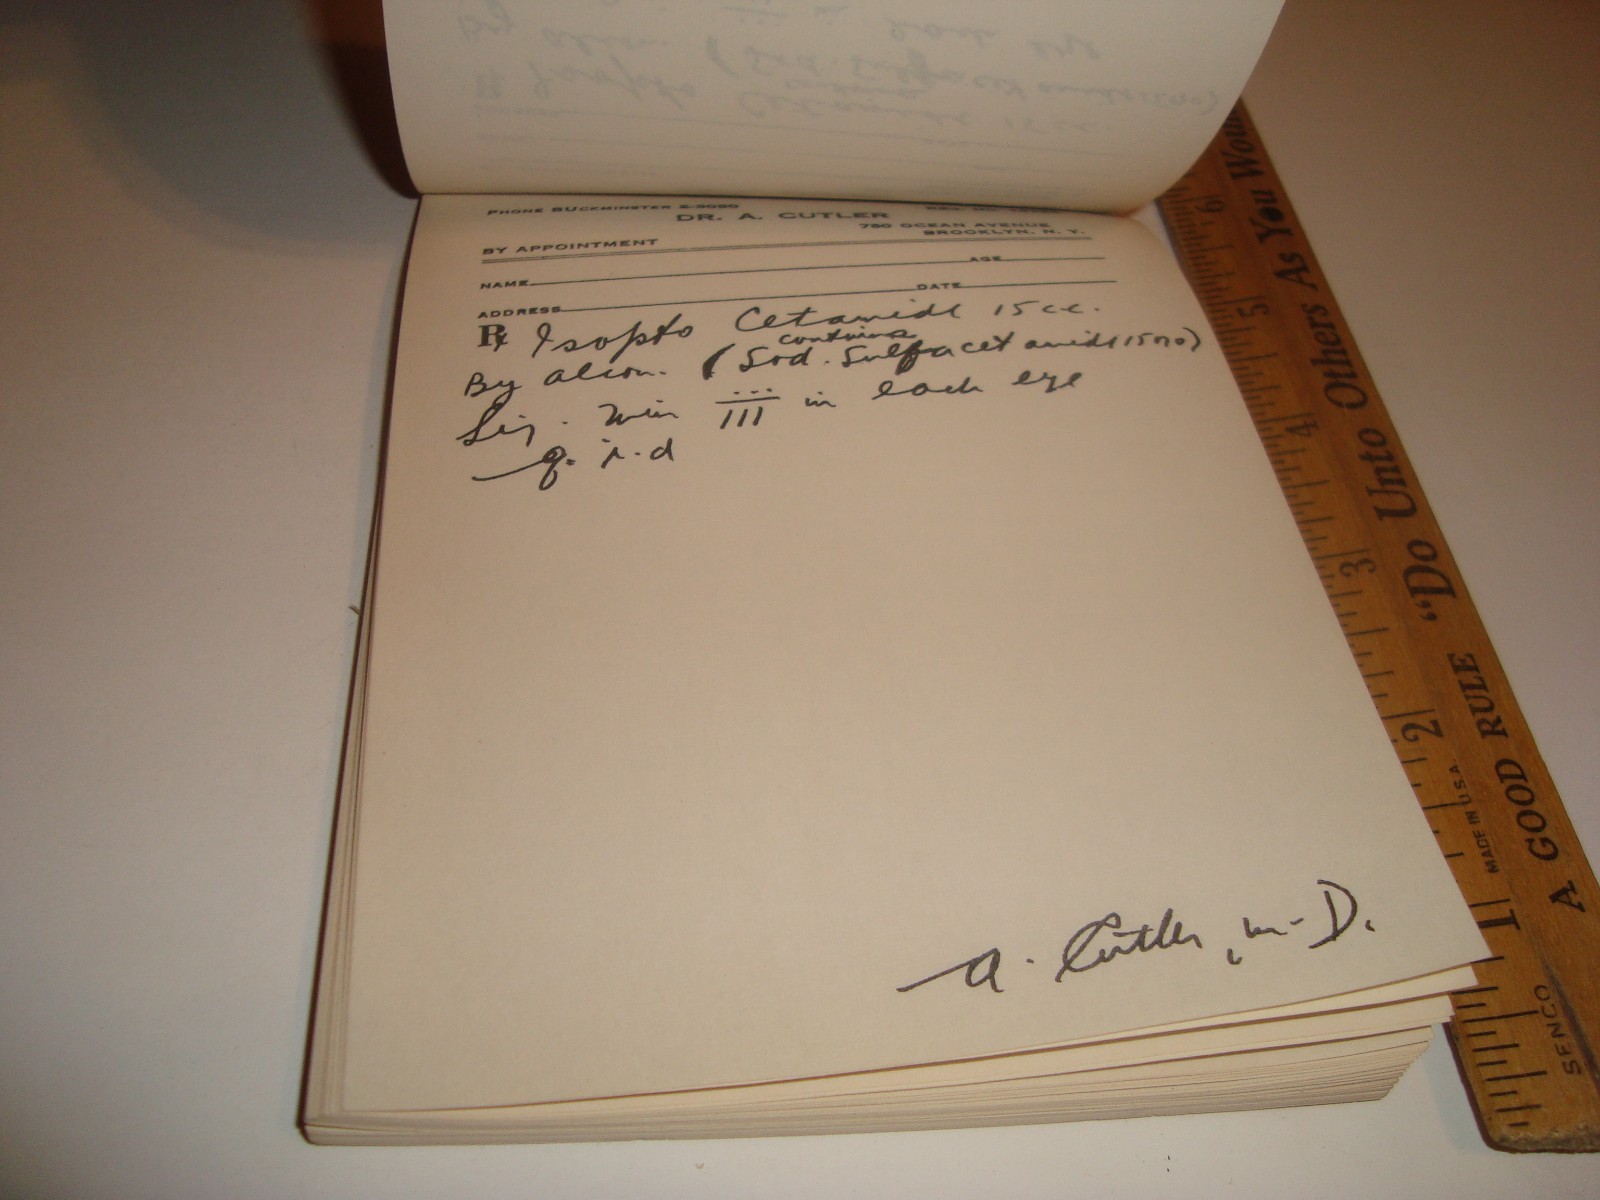 PHONE BUCKMINSTER 2-5050
DR. A. CUTLER
780 OCEAN AVENUE
BROOKLYN, N. Y.
BY APPOINTMENT
NAME AGE
ADDRESS DATE
Rx Isopto Cetamide 15cc.
contains
By alcon. (Sod. Sulfacetamide 15%)
Sig. min iii in each eye
q. i. d
A. Cutler, M.D.
SENCO MADE IN U.S.A. 1 2 3 4 5 6
A GOOD RULE "Do Unto Others As You Woul